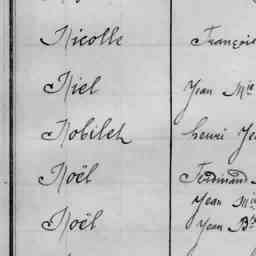 Nicolle François
Niel Jean Mie
Nobileh henri Je
Noël Ferdinand
Jean Mie
Noël Jean Bte